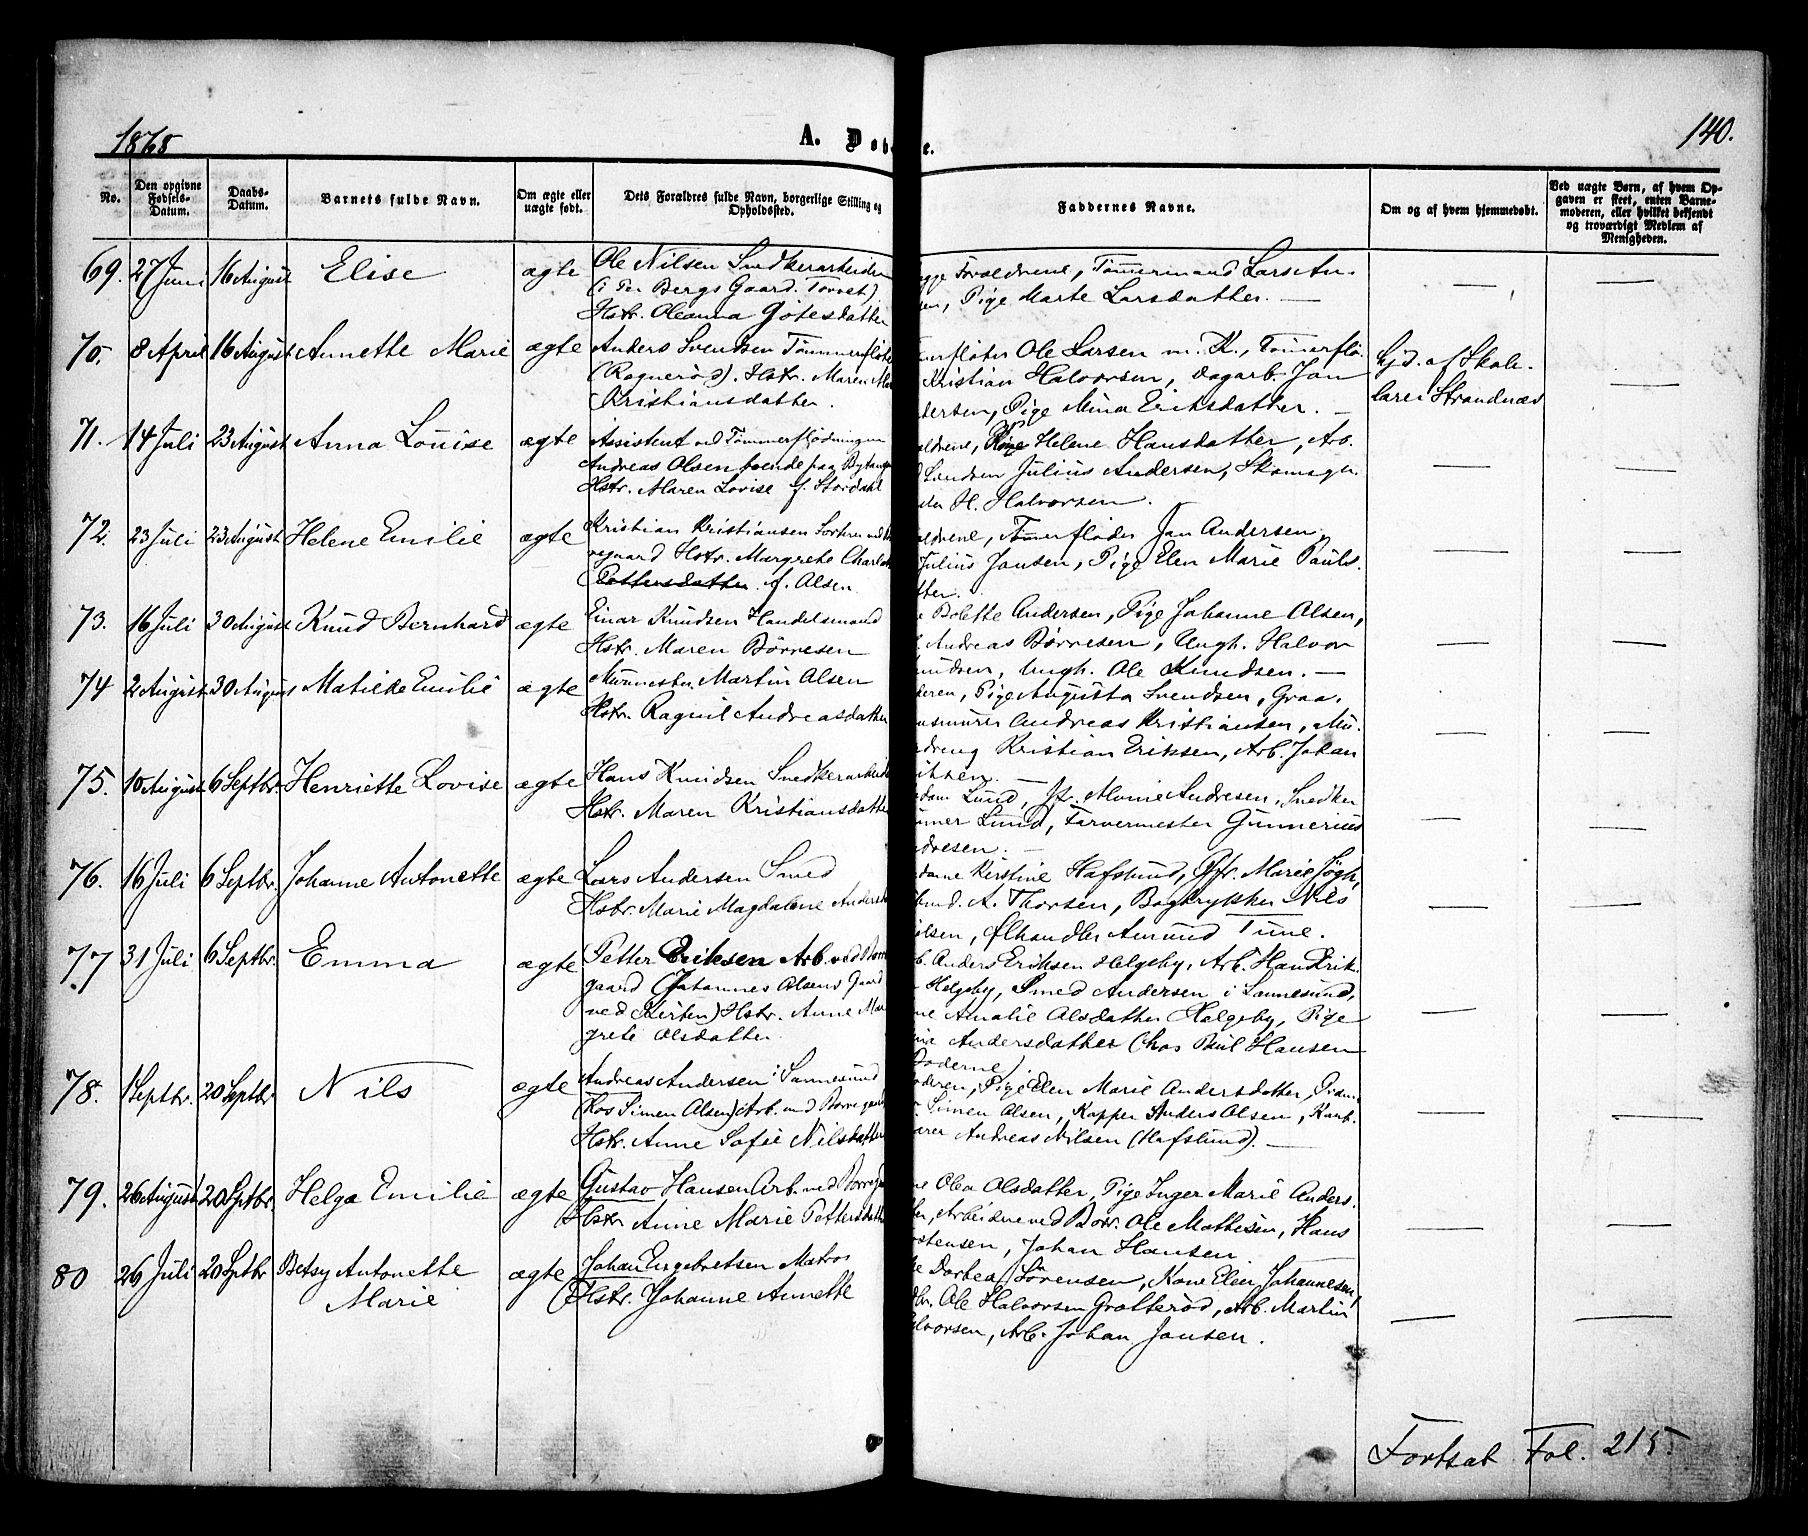 1868
A. Døb e.
140.
No.
Den opgivne Fødsels-Datum.
Daabs-Datum.
Barnets fulde Navn.
Om ægte eller uægte født.
Dets Forældres fulde Navn, borgerlige Stilling og Opholdssted.
Faddernes Navne.
Om og af hvem hjemmedøbt.
Ved uægte Børn, af hvem Opgaven er skeet, enten Barnemoderen, eller hvilket bekjendt og troværdigt Medlem af Menigheden.
69. 27 Juni 16 August Elise ægte
Ole Nilsen Snedkerarbeider
(i Per Bergs Gaard. Torvet)
Hstr. Oleanna Götesdatter
gge Forældrene, Tömmermand Lars An-
en, Pige Marte Larsdatter. —
70. 8 April 16 August Annette Marie ægte
Anders Svendsen Tömmerfløter
(Rognerød). Hstr. Maren
Kristiansdatter.
merfløter Ole Larsen m. K., Tömerflø-
Kristian Halvorsen, Dagarb. Jan
dersen, Pige Mina Eriksdatter. —
Hjd. af Skole-
lærer Strandnæs
71. 14 Juli 23 August Anna Louise ægte
Assistent ved Tömmerflødningen
Andreas Olsen boende paa Bytangen
Hstr. Maren Lovise f. Stordahl
ældrene, Pige Helene Hansdatter, Arb.
Julius Andersen, Skomager
H. Halvorsen.
72. 23 Juli 23 August Helene Emilie ægte
Kristian Kristiansen Sorterer ved Bor
regaard Hstr. Margrethe Charlotte
(Pettersdatter f. Olsen.
ældrene, Tömmerfløder Jan Andersen,
Julius Jansen, Pige Elen Marie Pauls-
tter.
73. 16 Juli 30 August Knud Bernhard ægte
Einar Knudsen Handelsmand
Hstr. Maren Börresen
Bolette Andersen, Pige Johanne Olsen,
Andreas Börresen, Ungk. Halvor
nudsen, Ungk. Ole Knudsen. —
74 2 August 30 August Matilde Emilie ægte
Murmester Martin Olsen
Hstr. Ragnil Andreasdatter
deren, Pige Augusta Svendsen, Graa-
ensmurer Andreas Kristiansen, Mu-
rdreng Kristian Eriksen, Arb. Johan
75. 10 August 6 Septbr. Henriette Lovise ægte
Hans Knudsen Snedkerarbeider
Hstr. Maren Kristiansdatter
dam Lund, Jfr. Marie Andresen, Snedker
Lund, Farvermester Gunnerius
dresen. —
76. 16 Juli 6 Septbr. Johanne Antonette ægte
Lars Andersen Smed
Hstr. Marie Magdalene Anders
dame Kirstine Hafslund, Jfr. Marie Högh,
A. Thorsen, Bogtrykker Nils
Ølhandler Amund Tune.
77. 31 Juli 6 Septbr. Emma ægte
Petter Eriksen Arb. ved Borre
gaard (Johannes Olsens Gaard
ved Kirken) Hstr. Anne Mar
grete Olsdatter.
b. Anders Eriksen Helgeby, Arb. Hans Erik-
Helgeby, Smed Andersen i Sannesund,
ne Amalie Olsdatter Helgeby, Pige
Andersdatter (hos Paul Hansen
Boderne)
78. 1 Septbr. 20 Septbr Nils ægte
Andreas Andersen i Sannesund
(hos Simen Olsen) Arb. ved Borregaard
Hstr. Anne Sofie Nilsdatter
oderen, Pige Elen Marie Andersdatter, Pram-
Simen Olsen, Kapper Anders Olsen, Karb.
Andreas Nilsen (Hafslund). —
79. 26 August 20 Sptbr. Helga Emilie ægte
Gustav Hansen Arb. ved Borregd
Hstr Anne Marie Pettersdatter
ne Olea Olsdatter, Pige Inger Marie Anders-
Arbeiderne ved Borr. Ole Mathisen, Hans
stensen, Johan Hansen
80 26 Juli 20 Sptbr Betsy Antonette Marie ægte
Johan Engebretsen Matros
Hstr. Johanne Annette
Dortea Sörensen, Kone Elen Johannesen,
Ole Halvorsen Gratteröd, Arb. Martin
alvorsen, Arb. Johan Jansen.
Fortsat Fol. 215.